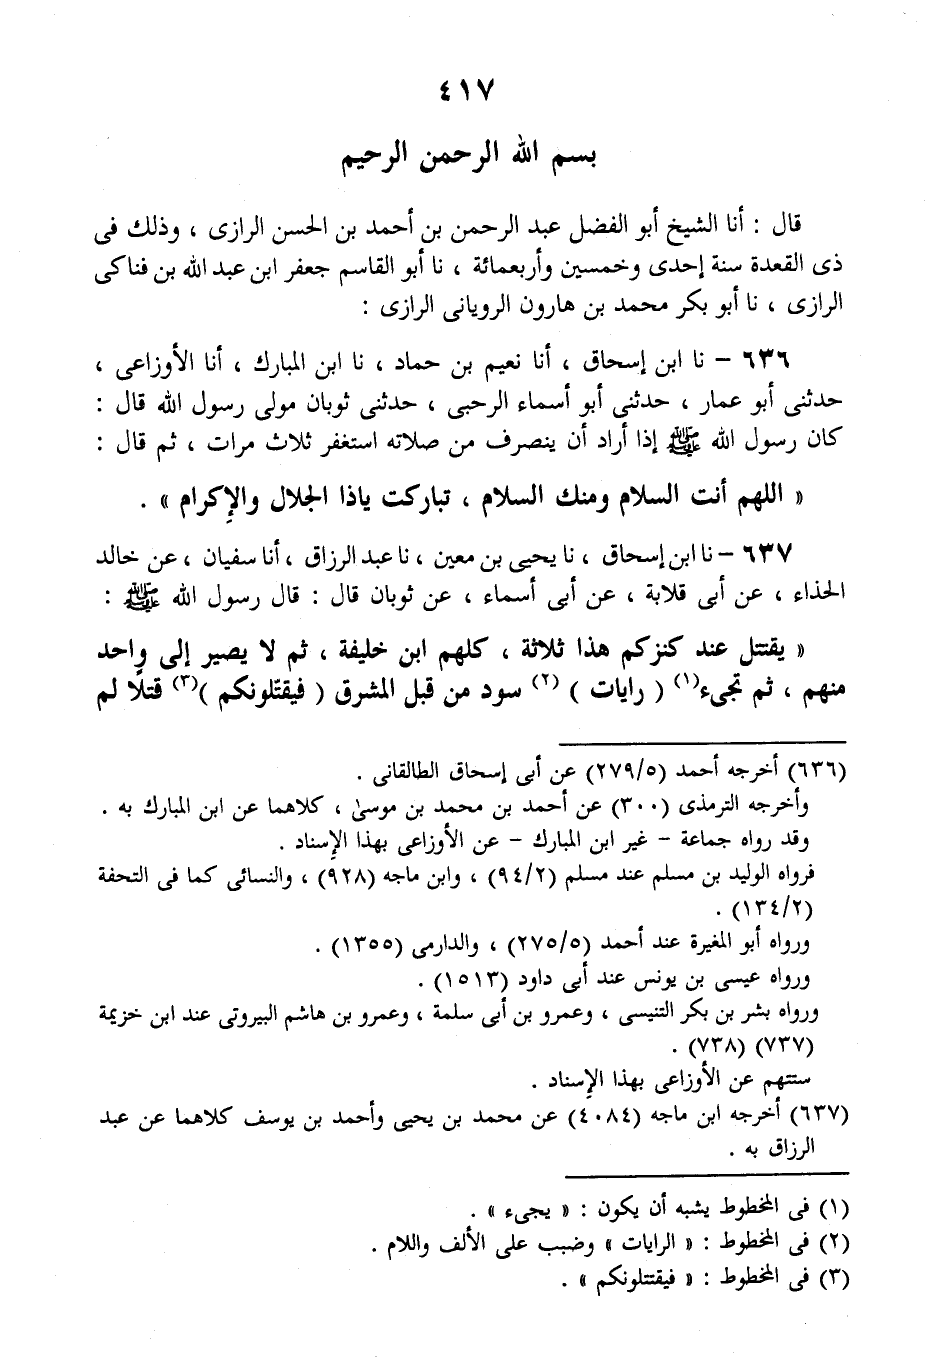 ٤١٧
بسم الله الرحمن الرحيم
قال : أنا الشيخ أبو الفضل عبد الرحمن بن أحمد بن الحسن الرازى ، وذلك فى
ذى القعدة سنة إحدى وخمسين وأربعمائة ، نا أبو القاسم جعفر ابن عبد الله بن فناكى
الرازى ، نا أبو بكر محمد بن هارون الرويانى الرازى :
٦٣٦ – نا ابن إسحاق ، أنا نعيم بن حماد ، نا ابن المبارك ، أنا الأوزاعى ،
حدثنى أبو عمار ، حدثنى أبو أسماء الرحبى ، حدثنى ثوبان مولى رسول الله قال :
كان رسول الله ﷺ إذا أراد أن ينصرف من صلاته استغفر ثلاث مرات ، ثم قال :
« اللهم أنت السلام ومنك السلام ، تباركت ياذا الجلال والإكرام » .
٦٣٧ – نا ابن إسحاق ، نا يحيى بن معين ، نا عبد الرزاق ، أنا سفيان ، عن خالد
الحذاء ، عن أبى قلابة ، عن أبى أسماء ، عن ثوبان قال : قال رسول الله ﷺ :
« يقتتل عند كنزكم هذا ثلاثة ، كلهم ابن خليفة ، ثم لا يصير إلى واحد
منهم ، ثم تجىء(١) ( رايات ) (٢) سود من قبل المشرق ( فيقتّلونكم )(٣) قتلًا لم
(٦٣٦) أخرجه أحمد (٢٧٩/٥) عن أبى إسحاق الطالقانى .
وأخرجه الترمذى (٣٠٠) عن أحمد بن محمد بن موسىٰ ، كلاهما عن ابن المبارك به .
وقد رواه جماعة – غير ابن المبارك – عن الأوزاعى بهذا الإسناد .
فرواه الوليد بن مسلم عند مسلم (٩٤/٢) ، وابن ماجه (٩٢٨) ، والنسائى كما فى التحفة
(١٣٤/٢) .
ورواه أبو المغيرة عند أحمد (٢٧٥/٥) ، والدارمى (١٣٥٥) .
ورواه عيسى بن يونس عند أبى داود (١٥١٣) .
ورواه بشر بن بكر التنيسى ، وعمرو بن أبى سلمة ، وعمرو بن هاشم البيروتى عند ابن خزيمة
(٧٣٧) (٧٣٨) .
ستتهم عن الأوزاعى بهذا الإسناد .
(٦٣٧) أخرجه ابن ماجه (٤٠٨٤) عن محمد بن يحيى وأحمد بن يوسف كلاهما عن عبد
الرزاق به .
(١) فى المخطوط يشبه أن يكون : « يجىء » .
(٢) فى المخطوط : « الرايات » وضبب على الألف واللام .
(٣) فى المخطوط : « فيقتتلونكم » .